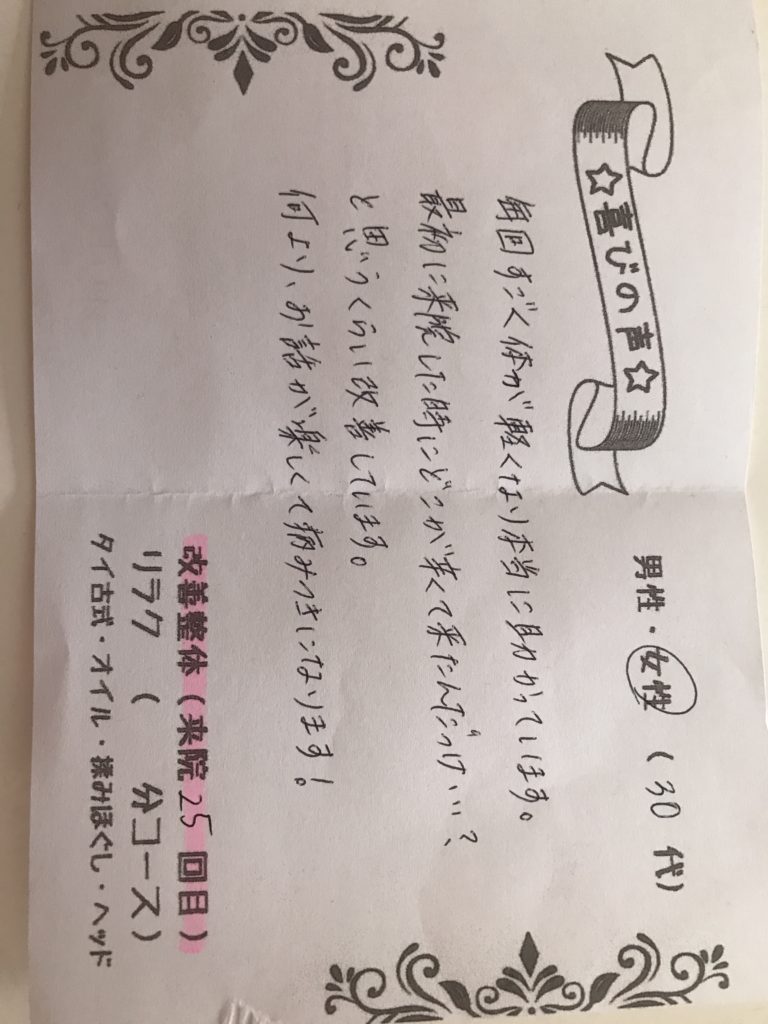 ☆喜びの声☆
男性・女性 (30代)
毎回すごく体が軽くなり本当に助かっています。
最初に来院した時にどこが辛くて来たんだっけ…?、
と思うくらい改善しています。
何より、お話が楽しくて病みつきになります!
改善整体(来院25回目)
リラク ( 分コース)
タイ古式・オイル・揉みほぐし・ヘッド